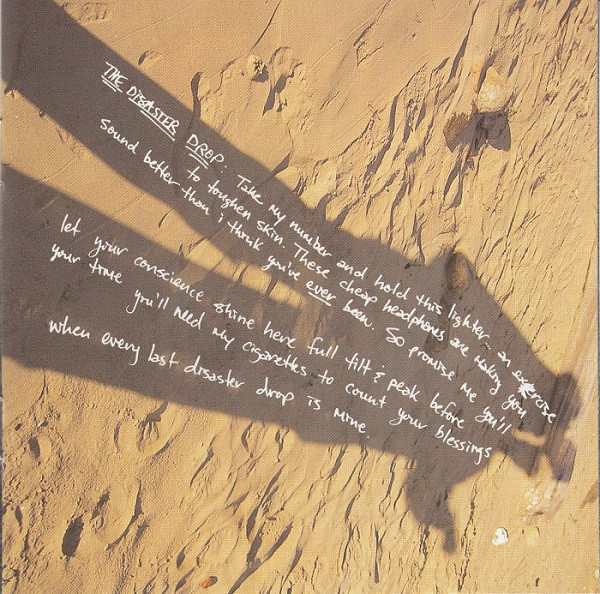 THE DISASTER DROP: Take my number and hold this lighter... an exercise
to toughen skin. These cheap headphones are making you
sound better than i think you've ever been. So promise me you'll
let your conscience shine here full tilt & peak before
your time you'll need my cigarettes to count your blessings
when every last disaster drop is mine.